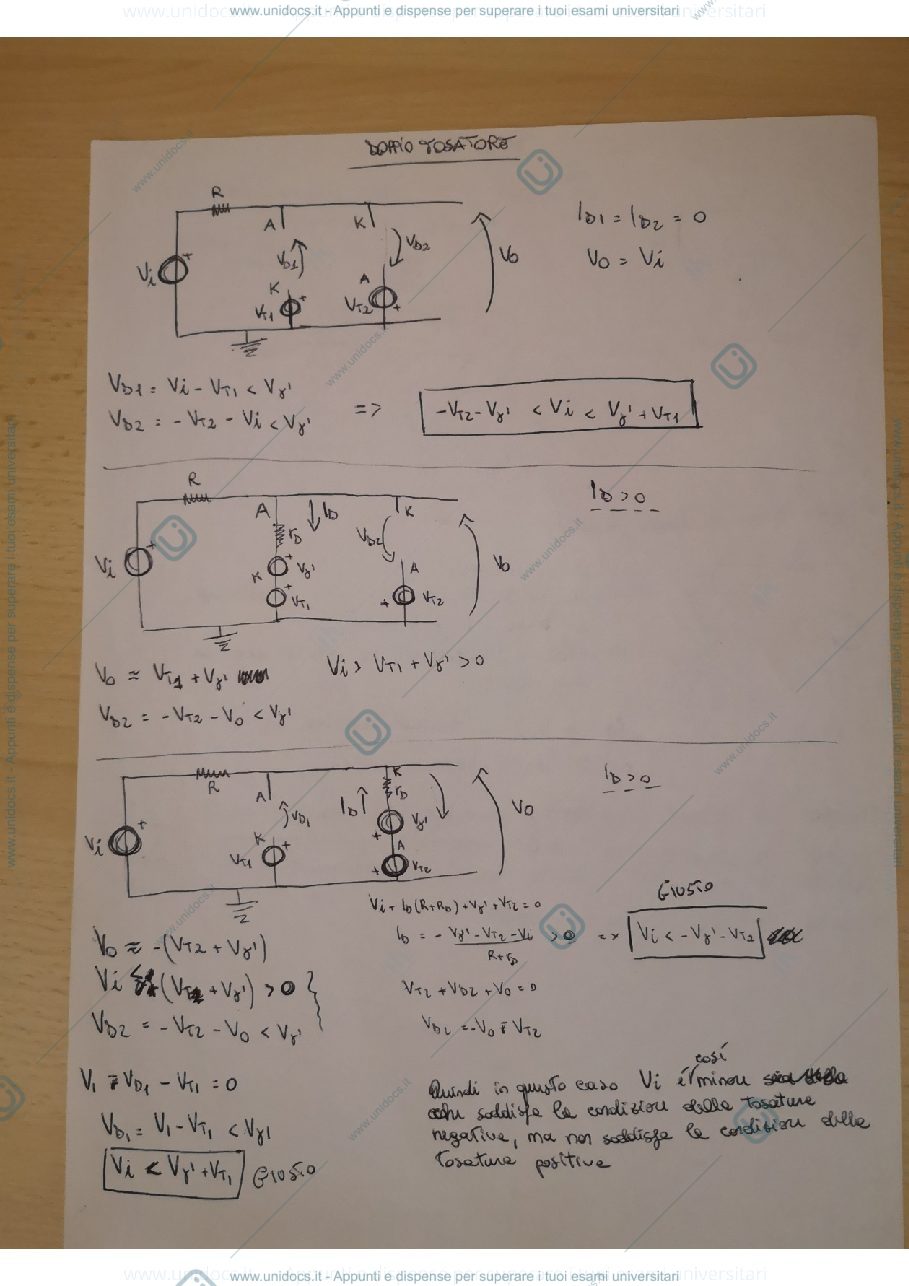 www.unidocs.it - Appunti e dispense per superare i tuoi esami universitari
DOPPIO TOSATORE
R
A
K
VD1
VD2
Vi
+
K
A
VT1
+
VT2
+
V0
ID1 = ID2 = 0
V0 = Vi
VD1 = Vi - VT1 < Vγ'
VD2 = - VT2 - Vi < Vγ'
=>
-VT2 - Vγ' < Vi < Vγ' + VT1
R
A
ID
rD
K
VD2
Vi
+
+
Vγ'
K
+
VT1
A
+
VT2
V0
ID > 0
V0 ≈ VT1 + Vγ'
Vi > VT1 + Vγ' > 0
VD2 = -VT2 - V0 < Vγ'
R
A
K
rD
ID
VD1
Vi
+
K
VT1
+
+
Vγ'
A
+
VT2
V0
ID > 0
Vi + ID(R+RD) + Vγ' + VT2 = 0
GIUSTO
V0 ≈ -(VT2 + Vγ')
ID = - Vγ' - VT2 - Vi > 0 => Vi < -Vγ' - VT2
R + rD
Vi (VT2 + Vγ') > 0
VT2 + VD2 + V0 = 0
VD2 = - VT2 - V0 < Vγ'
VD2 = -V0 - VT2
Vi - VD1 - VT1 = 0
VD1 = Vi - VT1 < Vγ'
Vi < Vγ' + VT1 GIUSTO
così
Quindi in questo caso Vi è minore
che soddisfa le condizioni della tosatura
negativa, ma non soddisfa le condizioni della
tosatura positiva
www.unidocs.it - Appunti e dispense per superare i tuoi esami universitari